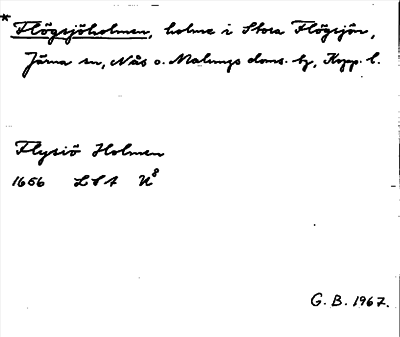 * Flögsjöholmen, holme i Stora Flögsjön,
Järna sn, Nås o. Malungs doms. hg, Kopp. l.
Flysiö Holmen
1656 LSA U8
G. B. 1967.